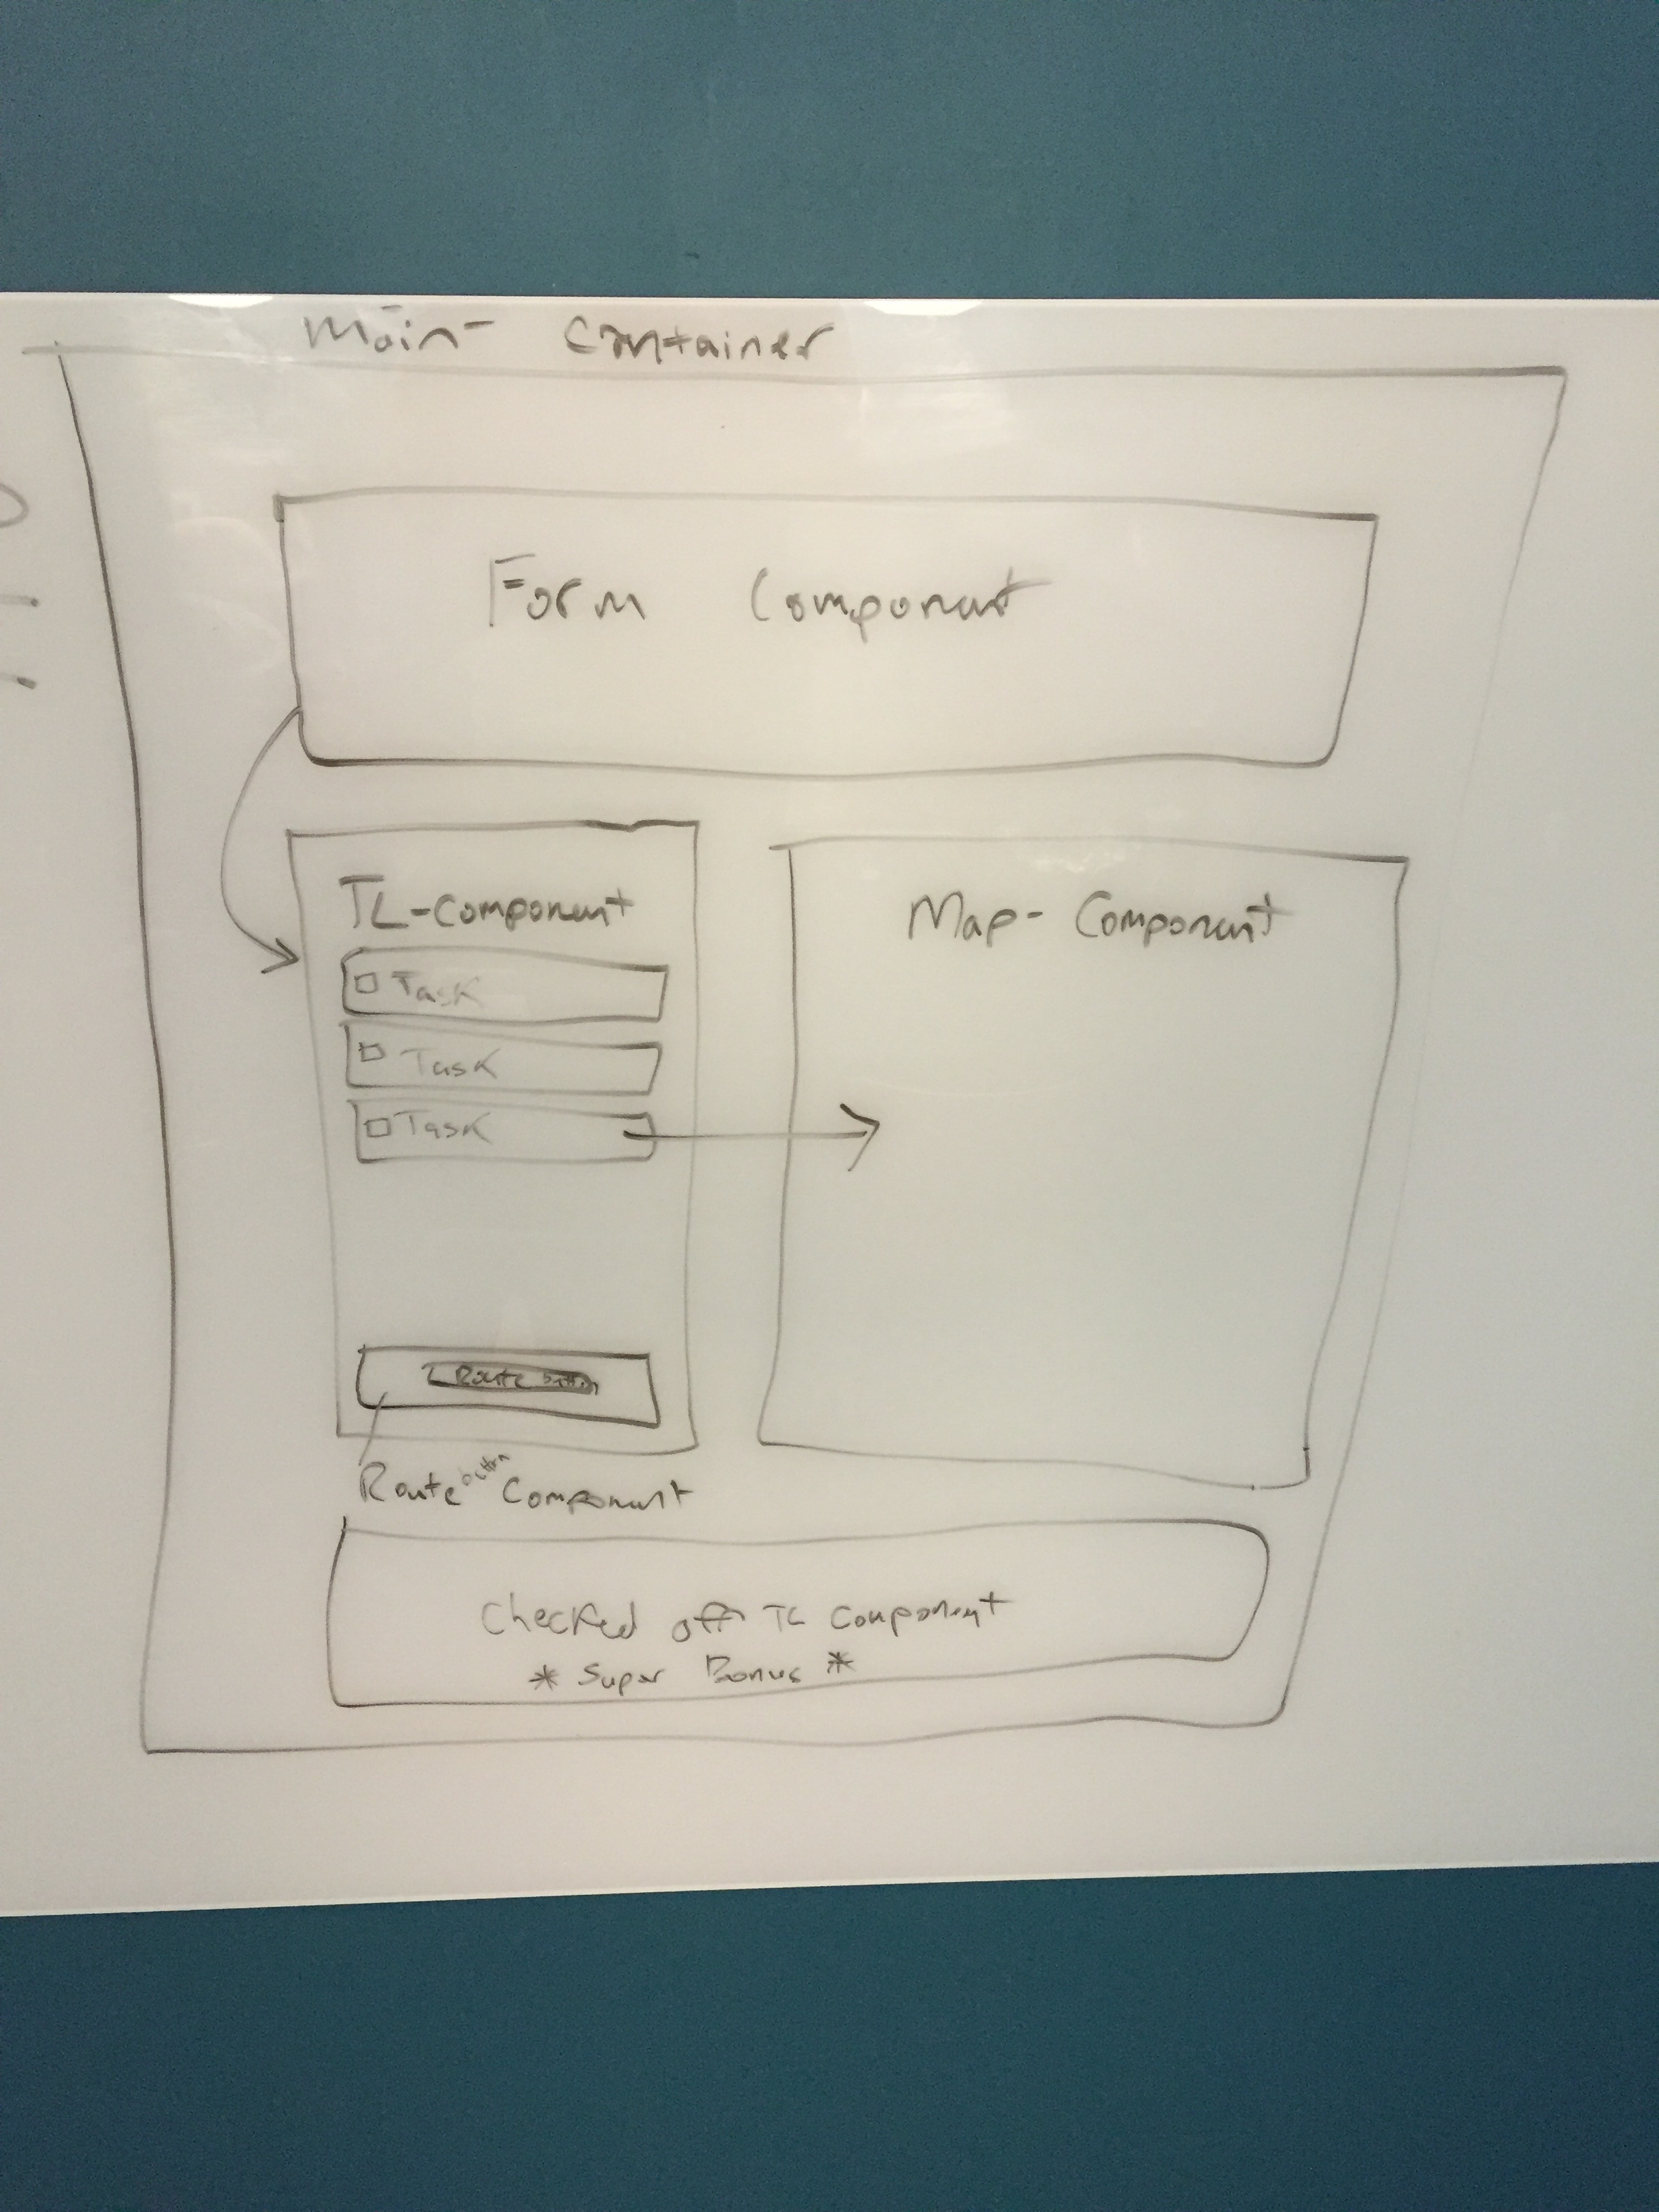 Main- Container
Form Component
TL-Component
Task
Task
Task
Map- Component
Route button
Route button Component
Checked off TL Component
* Super Bonus *